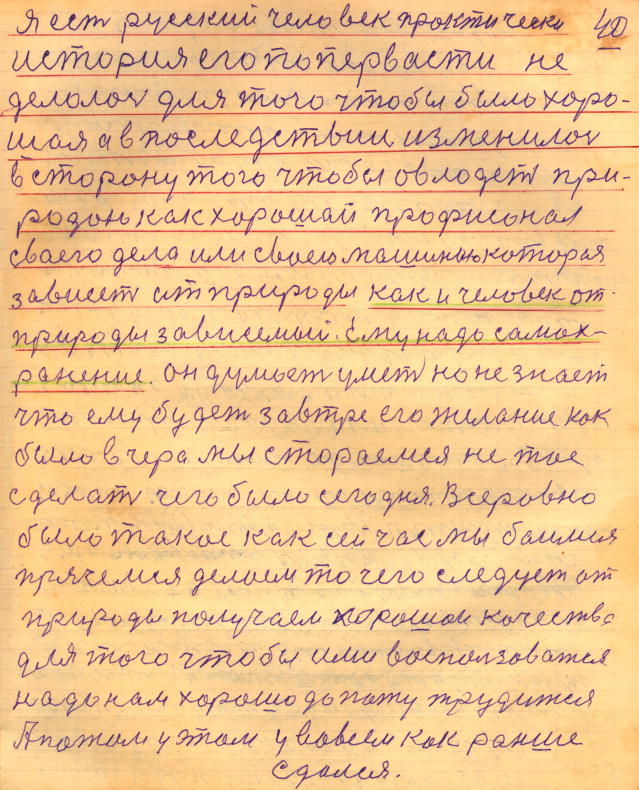 я ест русский человек практически 40
история его по первасти не
делолас для того чтобы было хоро-
шая а впоследствии изменилос
в сторону того чтобы овлодет при-
родою как хороший профисионал
своего дела или своею машиною которая
зависет от природы как и человек от
природы зависемый. Ему надо самох-
ранение. он думьет умет но не знает
что ему будет завтре его желание как
было вчера мы стораемся не тое
сделат чего было сегодня. Всеровно
было такое как сейчас мы баимся
прячемся делаем то чего следует от
природы получаем хорошои качества
для того чтобы ими воспользоватся
надо нам хорошо трудится
А потом у этом у вовсем как ранше
сдался.